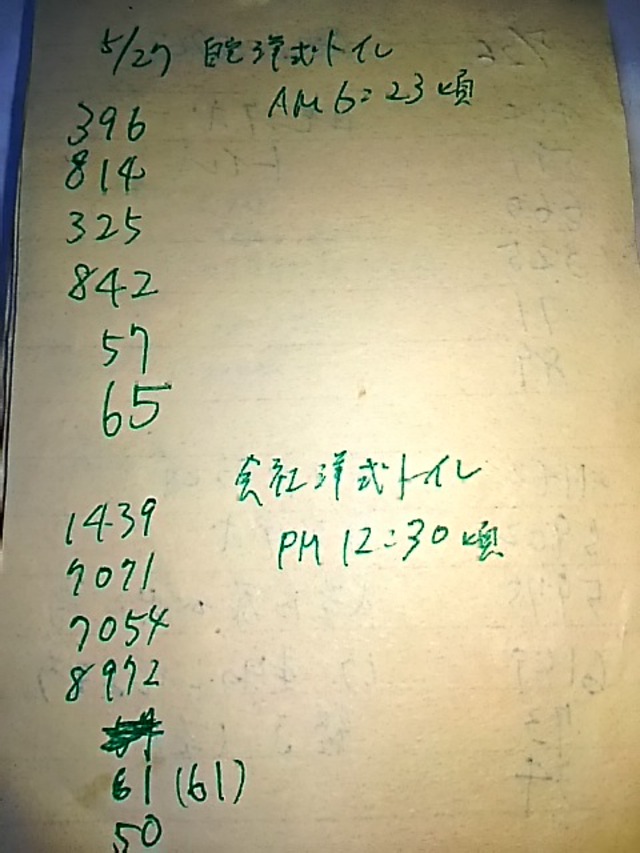 5/27 自宅洋式トイレ
AM6:23頃
396
814
325
842
57
65
会社洋式トイレ
PM 12:30頃
1439
7071
7054
8972
61 (61)
50